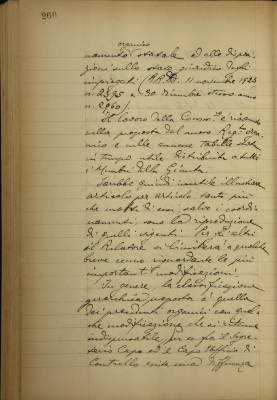 266
organico
namento statale ed alle disposi-
zioni sullo stato giuridico degli
impiegati (RR.DD. 11 novembre 1923
n. 2395 e 30 dicembre stesso anno
n. 2960).
Il lavoro della Comm.ne è riassunto
nella proposta del nuovo Reg.to Orga-
nico e nelle annesse tabelle state
in tempo utile distribuite a tutti
i Membri della Giunta.
Sarebbe quindi inutile illustrare
articolo per articolo tanto più
che molti di essi, salvo i
sono la riproduzione
di quelli vigenti. Per gli altri
il Relatore si limiterà a qualche
breve cenno riguardante le più
importanti modificazioni.
In genere, la classificazione
gerarchica proposta è quella
dei precedenti organici con qual-
che modificazione che si ritiene
indispensabile, per es. fra il Segre-
tario Capo ed il Capo Ufficio di
Controllo esiste una differenza